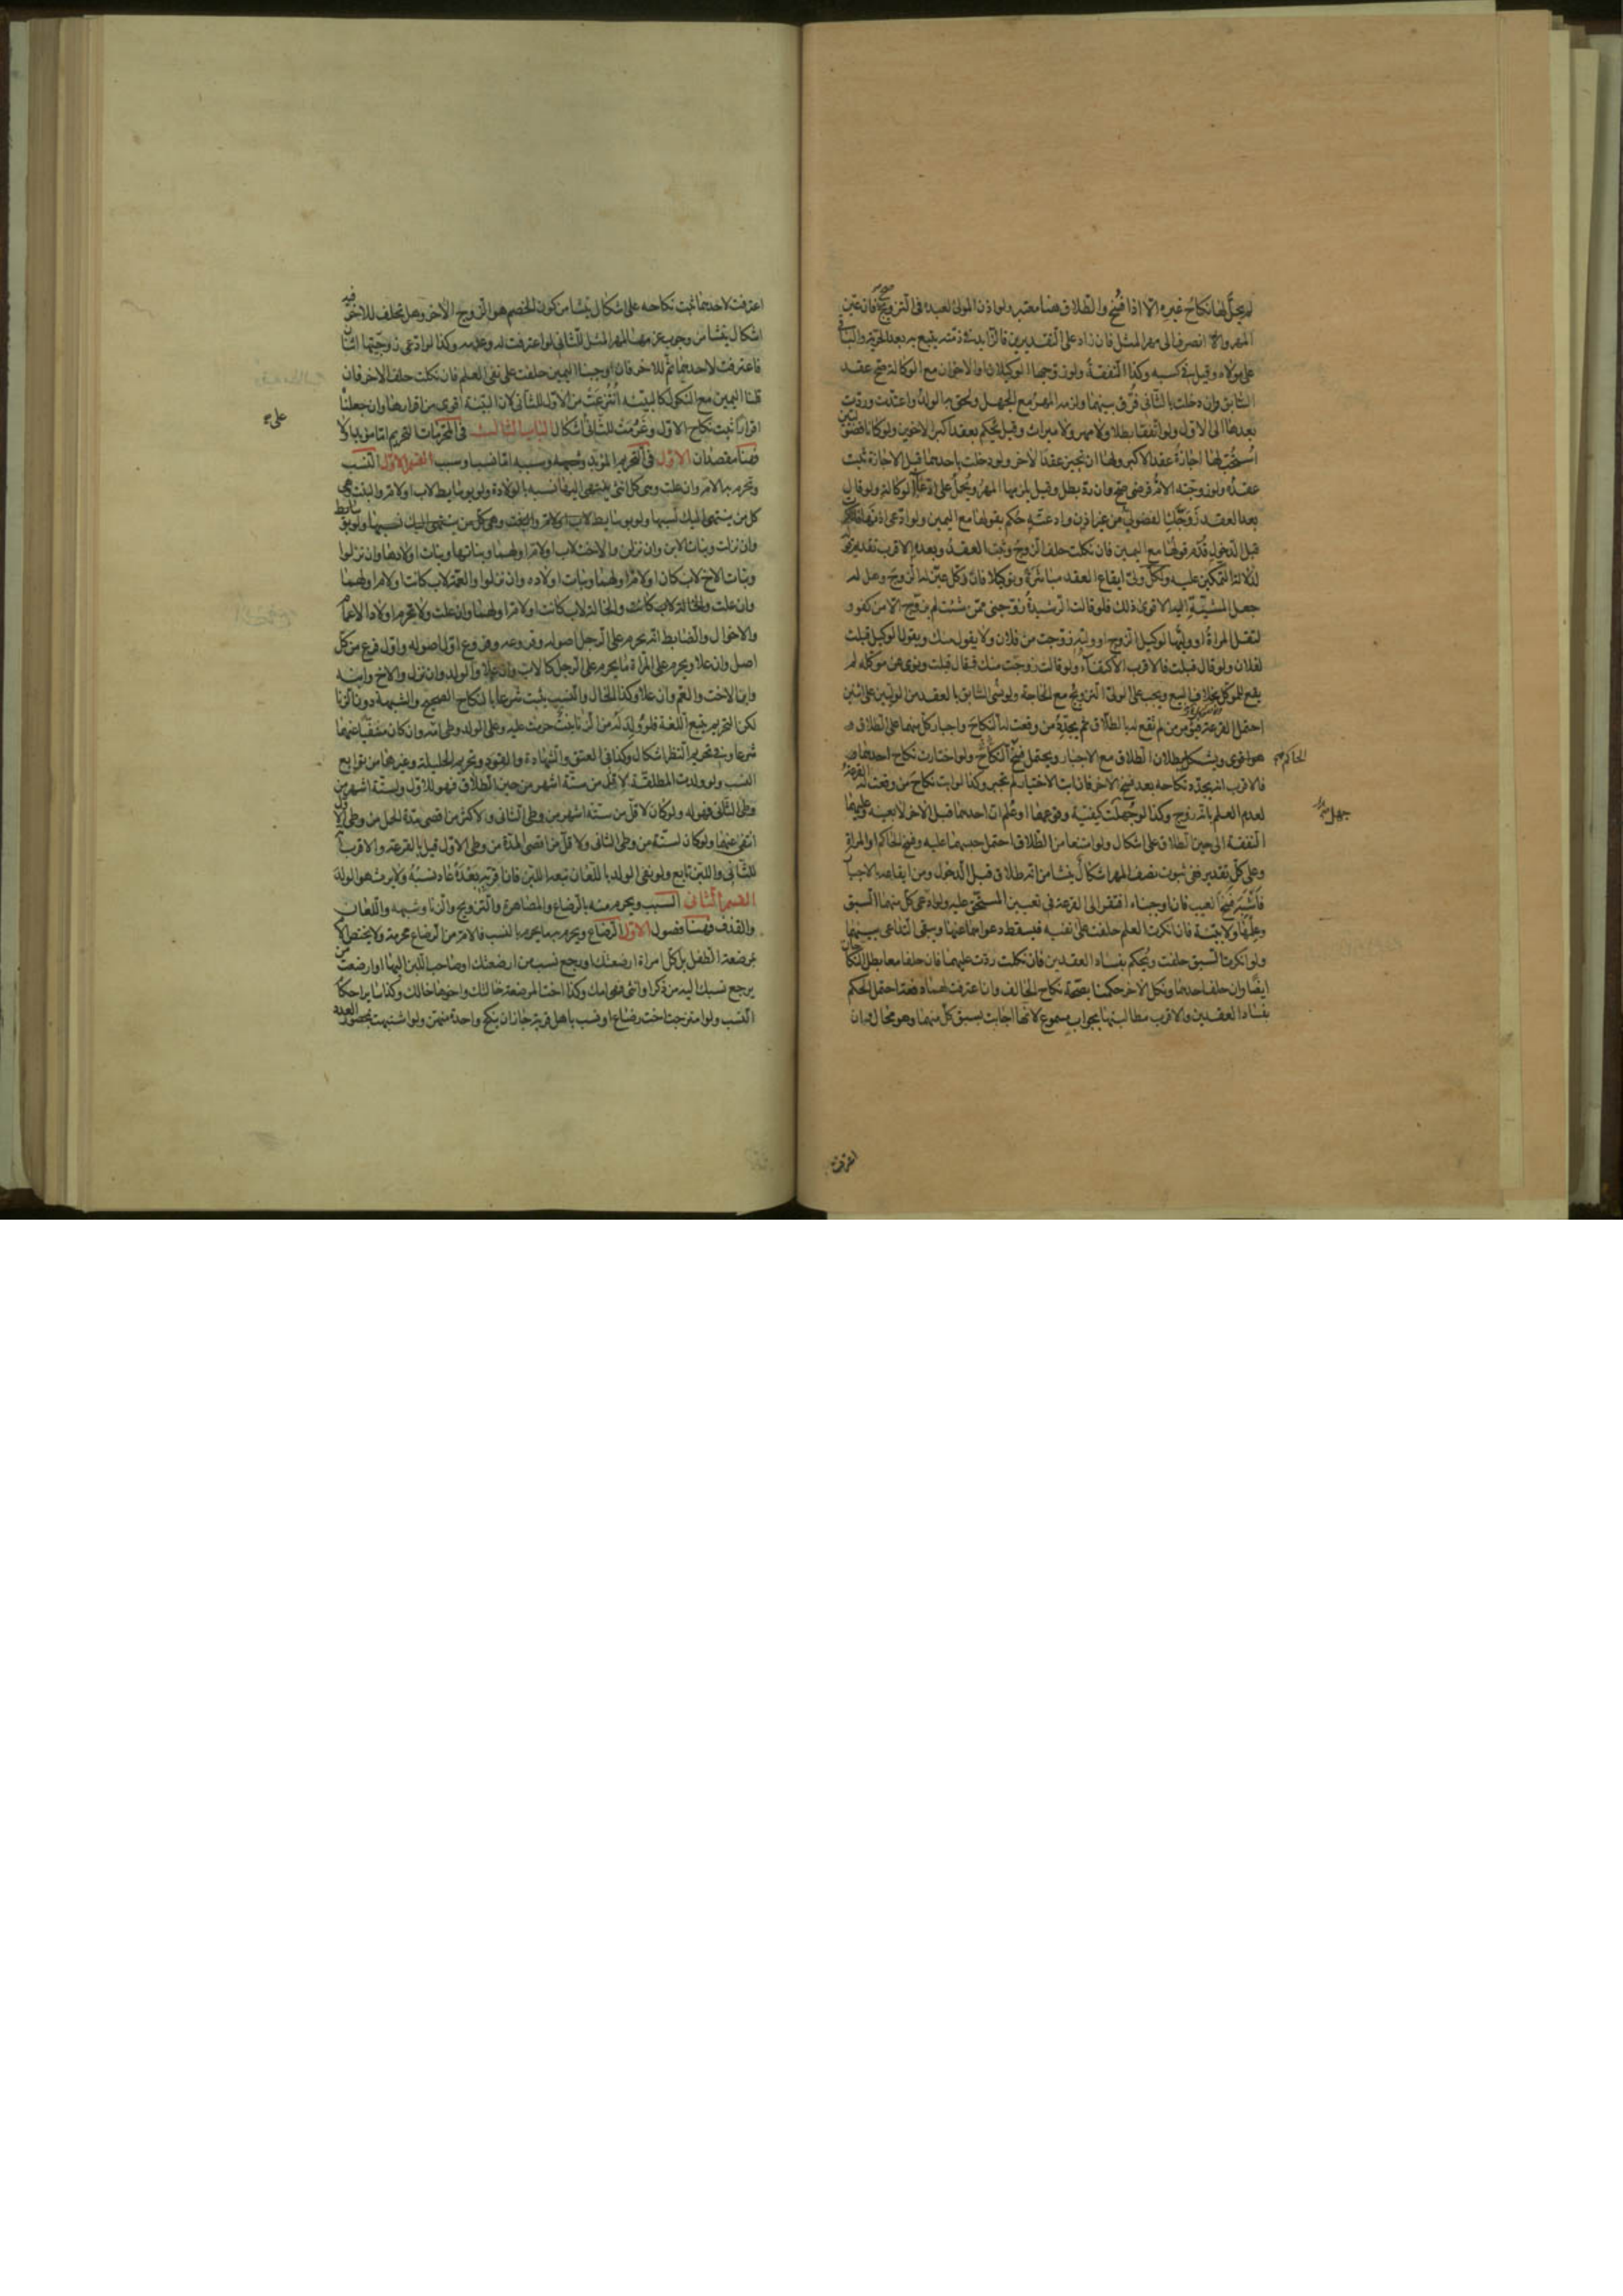 لم يحل لها نكاح غيره الا اذا فسخ والطلاق هنا معتبر ولو اذن المولى لعبده في التزويج صح فان عين
المهر والا انصرف الى مهر المثل فان زاد على التقديرين فالزايد في ذمته يتبع به بعد الحرية والباقي
على مولاه وقيل في كسبه وكذا النفقة ولو زوجها الوكيلان او الاخوان مع الوكالة صح عقد
السابق وان دخلت بالثاني فرق بينهما ولزمه المهر مع الجهل ولحق به الولد واعتدت وردت
بعدها الى الاول ولو اتفقا بطلا ولا مهر ولا ميراث وقيل يحكم بعقد اكبر الاخوين ولو كانا فضوليين
استحب لها اجازة عقد الاكبر ولها ان تجيز عقد الاخر ولو دخلت باحدهما قبل الاجازة ثبت
عقده ولو زوجته الام فرضي صح وان رد بطل وقيل يلزمها المهر ويحمل على ادعاء الوكالة ولو قال
بعد العقد زوجك الفضولي من غير اذن وادعته حكم بقولها مع اليمين ولو ادعى اذنها فانكرت
قبل الدخول قدم قولها مع اليمين فان نكلت حلف الزوج وثبت العقد وبعده الاقرب تقديم قوله
لدلالة التمكين عليه ولكل ولي ايقاع العقد مباشرة وبتوكيلا فان وكل عين له الزوج وهل له
جعل المشية اليه الاقوى ذلك فلو قالت الرشيدة زوجني ممن شئت لم يزوج الا من كفو و
لتقل المراة او وليها لوكيل الزوج او وليه زوجت من فلان ولا يقول منك ويقول الوكيل قبلت
لفلان ولو قال قبلت فالاقرب الاكتفاء ولو قالت زوجت منك فقال قبلت ونوى عن موكله لم
يقع للموكل بخلاف البيع ويجب على الولي التزويج مع الحاجة ولو نسي السابق بالعقد من الوليين على اثنين
احتمل القرعة فيؤمر من لم تقع له بالطلاق ثم يجدد من وقعت له النكاح واجبار كل منهما على الطلاق
هو اقوى ويشكل ببطلان الطلاق مع الاجبار ويحتمل فسخ النكاح ولو اختارت نكاح احدهما
فالاقرب انه يجدد نكاحه بعد فسخ الاخر فان ابت الاختيار لم تجبر وكذا لو ابت نكاح من وقعت له القرعة
لعدم العلم بانه زوج وكذا لو جهلت كيفية وقوعهما او علم ان احدهما قبل الاخر لا بعينه وعليهما
النفقة الى حين الطلاق على اشكال ولو امتنعا من الطلاق احتمل حبسهما عليه وفسخ الحاكم او المراة
وعلى كل تقدير ففي ثبوت نصف المهر اشكال ينشا من انه طلاق قبل الدخول ومن ايقاعه بالاجبار
فاشبه فسخ العيب فان اوجبناه افتقر الى القرعة في تعيين المستحق عليه ولو ادعى كل منهما السبق
وعلمها ولا بينة فان انكرت العلم حلفت على نفيه فيسقط دعواهما عنها ويبقى التداعي بينهما
ولو انكرت السبق حلفت ويحكم بفساد العقدين فان نكلت ردت عليهما فان حلفا معا بطل النكاحان
ايضا وان حلف احدهما ونكل الاخر حكمنا بصحة نكاح الحالف وان اعترفت لهما دفعة احتمل الحكم
بفساد العقدين والاقرب مطالبتها بجواب مسموع لانها اجابت بسبق كل منهما وهو محال فان
الحاكم
جهل
اعترفت
اعترفت لاحدهما ثبت نكاحه على اشكال ينشا من كون الخصم هو الزوج الاخر وهل تحلف للاخر فيه
اشكال ينشا من وجوب غرمها المهر المثل للثاني لو اعترفت له وعدمه وكذا لو ادعى زوجيتها اثنان
فاعترفت لاحدهما ثم للاخر فان اوجبنا اليمين حلفت على نفي العلم فان نكلت حلف الاخر فان
قلنا اليمين مع النكول كالبينة انتزعت من الاول للثاني لان البينة اقوى من اقرارها وان جعلناه
اقرارا ثبت نكاح الاول وغرمت للثاني اشكال الباب الثالث في المحرمات التحريم اما مؤبد او لا
فهنا مقصدان الاول في التحريم المؤبد وسببه اما نسب او سبب القسم الاول النسب
وتحرم به الام وان علت وهي كل انثى ينتهي اليها نسبه بالولادة ولو بوسايط لاب او لام والبنت وهي
كل من ينتهي اليك نسبها ولو بوسايط لاب او لام والاخت وهي كل من ينتهي اليك نسبها ولو بوسايط
وان نزلت وبنات الابن وان نزلن والاخت لاب او لام او لهما وبناتها وبنات اولادها وان نزلوا
وبنات الاخ لاب كان او لام او لهما وبنات اولاده وان نزلوا والعمة لاب كانت او لام او لهما
وان علت والخالة لاب كانت او لام او لهما وان علت ولا تحرم اولاد الاعمام
والاخوال والضابط انه يحرم على الرجل اصوله وفروعه وفروع اول اصوله واول فرع من كل
اصل وان علا ويحرم على المراة ما يحرم على الرجل كالاب وان علا والولد وان نزل والاخ وابنه
وابن الاخت والعم وان علا وكذا الخال والنسب يثبت شرعا بالنكاح الصحيح والشبهة دون الزنا
لكن التحريم يتبع اللغة فلو ولد له من الزنا بنت حرمت عليه وعلى الولد وطي امه وان كان منفيا عنهما
شرعا وفي تحريم النظر اشكال وكذا في العتق والشهادة والقود وتحريم الحليلة وغيرها من توابع
النسب ولو ولدت المطلقة لاقل من ستة اشهر من حين الطلاق فهو للاول ولستة اشهر من
وطي الثاني فهو له ولو كان لاقل من ستة اشهر من وطي الثاني والاكثر من اقصى مدة الحمل من وطي الاول
انتفى عنهما ولو كان لستة من وطي الثاني ولاقل من اقصى المدة من وطي الاول قيل بالقرعة والاقرب انه
للثاني واللبن تابع ولو نفى الولد باللعان تبعه اللبن فان اقر به بعده عاد نسبه ولا يرث هو الولد
القسم الثاني السبب ويحرم منه بالرضاع والمصاهرة والتزويج والزنا وشبهه واللعان
والقذف فهنا فصول الاول الرضاع ويحرم به ما يحرم بالنسب فالام من الرضاع محرمة ولا يختص الام
بمرضعة الطفل بل كل امراة ارضعتك او رجع نسب من ارضعتك او صاحب اللبن اليها او ارضعت من
يرجع نسبك اليه من ذكر او انثى فهي امك وكذا اخت المرضعة خالتك واخوها خالك وكذا ساير احكام
النسب ولو امتزجت اخت رضاع او نسب باهل قرية جاز ان ينكح واحدة منهن ولو اشتبهت بمحصور العدد
على